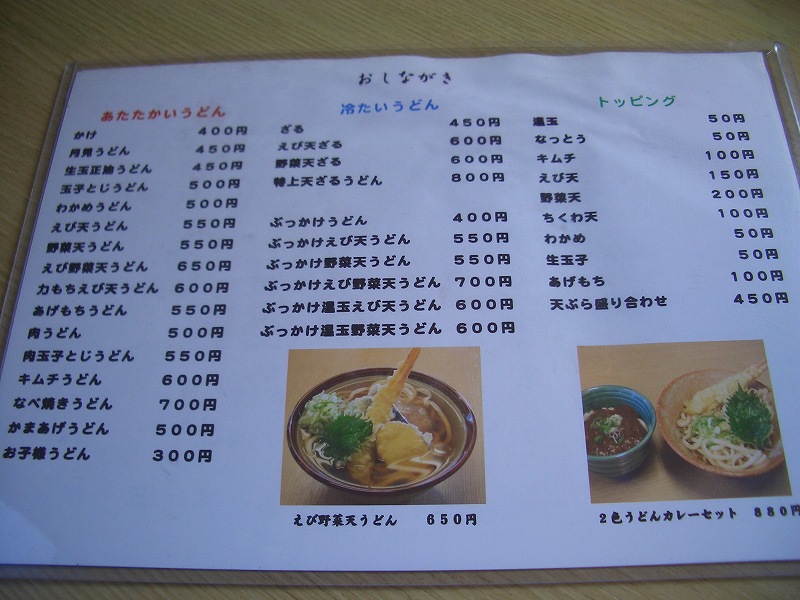 おしながき
あたたかいうどん
かけ 400円
月見うどん 450円
生玉正油うどん 450円
玉子とじうどん 500円
わかめうどん 500円
えび天うどん 550円
野菜天うどん 550円
えび野菜天うどん 650円
力もちえび天うどん 600円
あげもちうどん 550円
肉うどん 500円
肉玉子とじうどん 550円
キムチうどん 600円
なべ焼きうどん 700円
かまあげうどん 500円
お子様うどん 300円
冷たいうどん
ざる 450円
えび天ざる 600円
野菜天ざる 600円
特上天ざるうどん 800円
ぶっかけうどん 400円
ぶっかけえび天うどん 550円
ぶっかけ野菜天うどん 550円
ぶっかけえび野菜天うどん 700円
ぶっかけ温玉えび天うどん 600円
ぶっかけ温玉野菜天うどん 600円
トッピング
温玉 50円
なっとう 50円
キムチ 100円
えび天 150円
野菜天 200円
ちくわ天 100円
わかめ 50円
生玉子 50円
あげもち 100円
天ぷら盛り合わせ 450円
えび野菜天うどん 650円
2色うどんカレーセット 880円